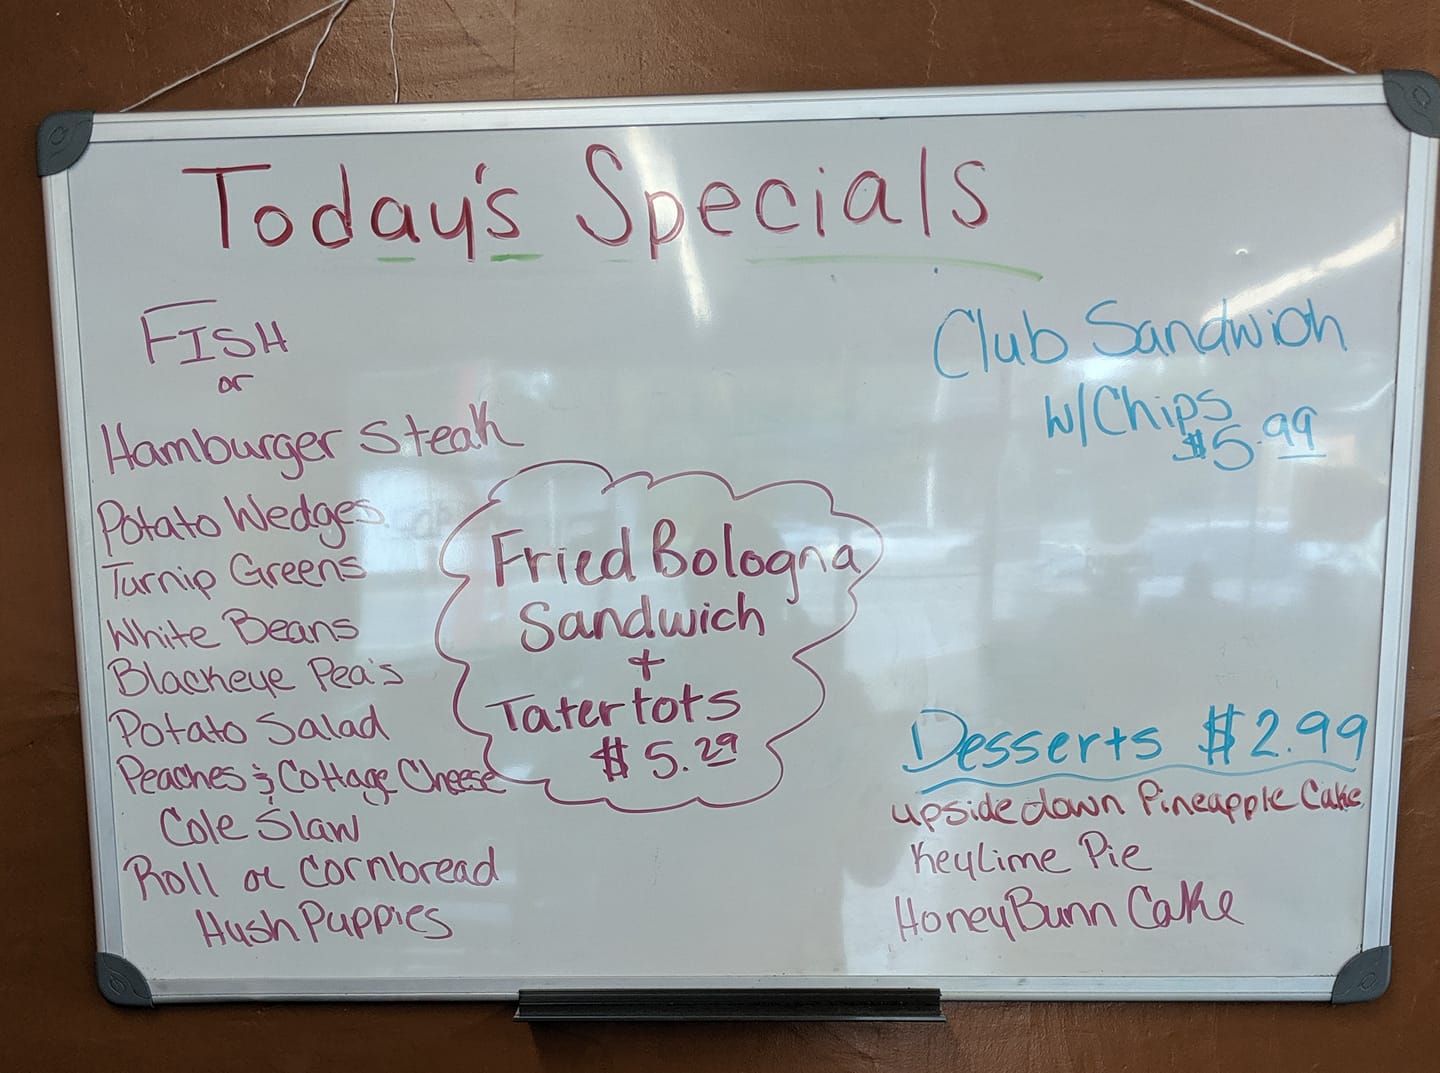 Today's Specials
FISH
or
Hamburger Steak
Potato Wedges
Turnip Greens
White Beans
Blackeye Pea's
Potato Salad
Peaches & Cottage Cheese
Cole Slaw
Roll or Cornbread
Hush Puppies
Fried Bologna
Sandwich
+
Tatertots
$5.29
Club Sandwich
w/Chips
$5.99
Desserts $2.99
upside down Pineapple Cake
KeyLime Pie
HoneyBunn Cake